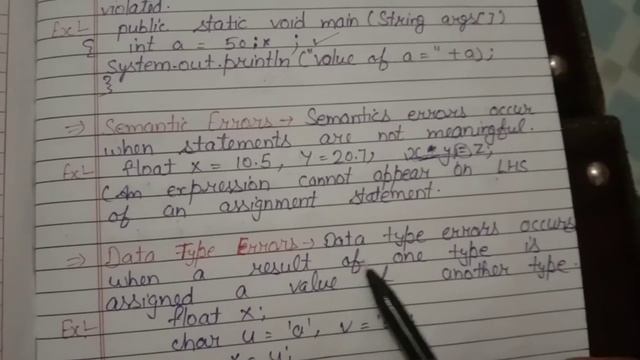 violated.
Ex:- public static void main (String args[])
{ int a = 50;x ; ✓
System.out.println ("value of a=" +a);
}
⇒ Semantic Errors → Semantics errors occur
when statements are not meaningful.
Ex:- float x = 10.5, Y = 20.7, x*y=z;
(an expression cannot appear on LHS
of an assignment statement.
⇒ Data Type Errors → Data type errors occurs
when a result of one type is
assigned a value another type.
Ex:- float x;
char u = 'a', v =